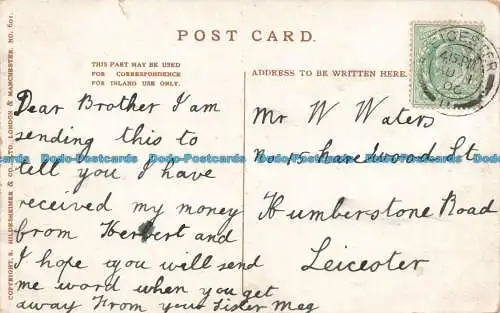 POST CARD.
THIS PART MAY BE USED
FOR CORRESPONDENCE
FOR INLAND USE ONLY.
ADDRESS TO BE WRITTEN HERE.
Dear Brother I am
sending this to
tell you I have
received my money
from Herbert and
I hope you will send
me word when you get
away From your Sister Meg
Mr W Waters
No 15 Harewood St
Humberstone Road
Leicester
COPYRIGHT, S. HILDESHEIMER & CO. LTD., LONDON & MANCHESTER NO. 601.
Dodo-Postcards Dodo-Postcards Dodo-Postcards Dodo-Postcards